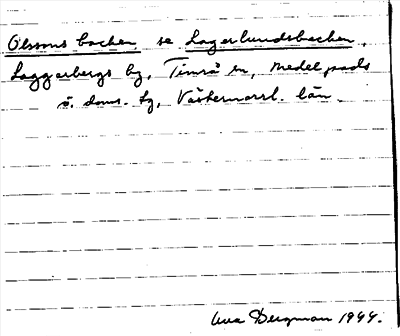 Olssons backen se Lagerlundsbacken,
Laggarbergs by, Timrå sn, Medelpads
ö. doms. tg, Västernorrl. län.
Bergman 1944.